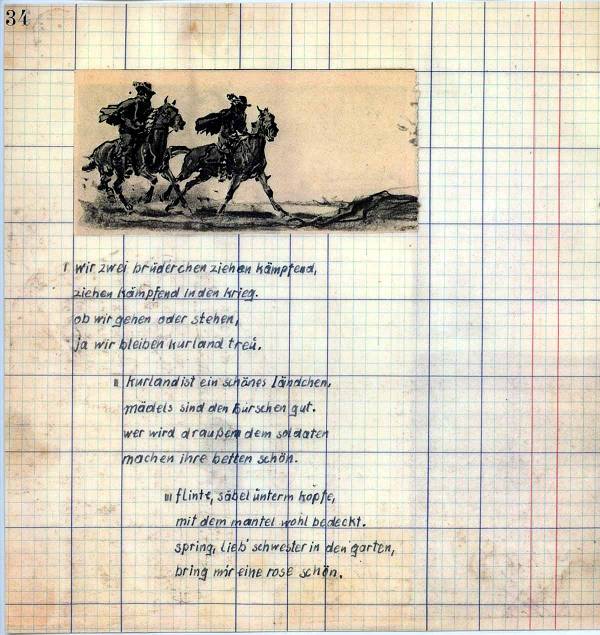 34
I wir zwei brüderchen ziehen kämpfend,
ziehen kämpfend in den krieg.
ob wir gehen oder stehen,
ja wir bleiben kurland treu.
II kurland ist ein schönes ländchen,
mädels sind den burschen gut.
wer wird draußen dem soldaten
machen ihre betten schön.
III flinte, säbel unterm kopfe,
mit dem mantel wohl bedeckt.
spring, lieb' schwester in den garten,
bring mir eine rose schön.